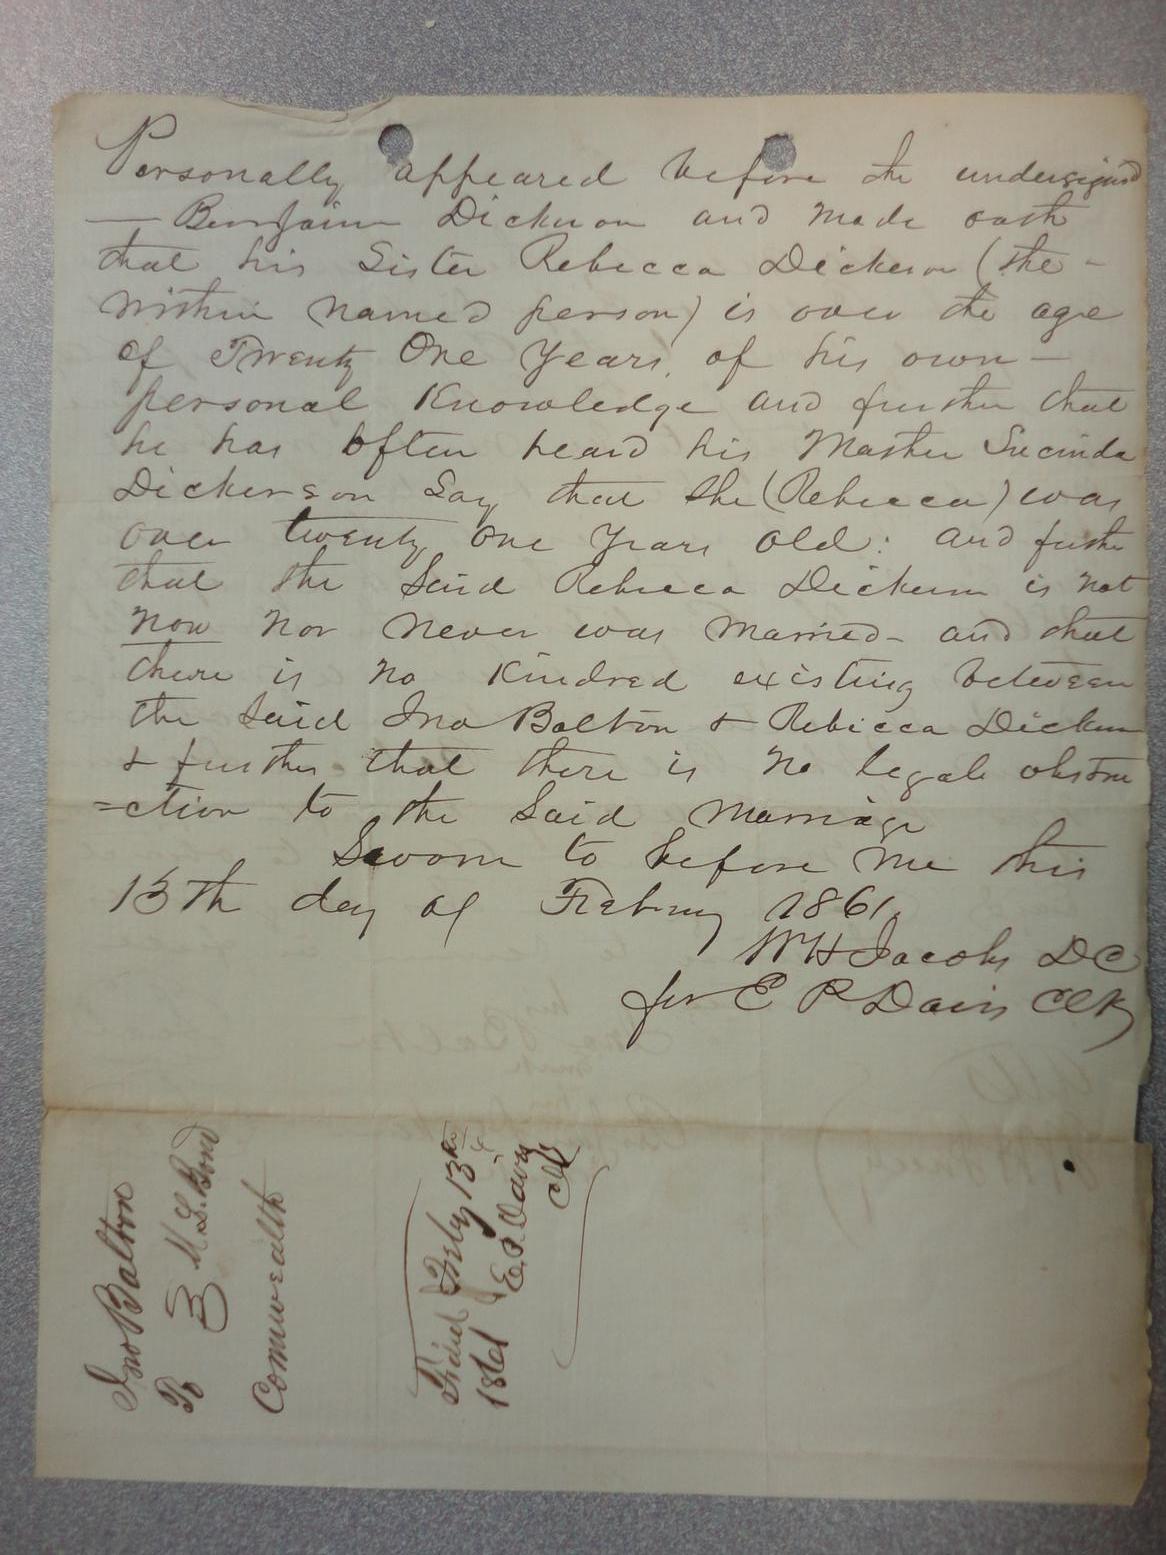 Personally appeared before the undersigned
— Benjamin Dickerson and made oath
that his Sister Rebecca Dickerson (the -
within named person) is over the age
of Twenty One Years, of his own —
personal Knowledge and further that
he has often heard his Master Lucinda
Dickerson Say that She (Rebecca) was
over twenty one years old: and further
that the Said Rebecca Dickerson is not
now nor never was married - and that
there is no Kindred existing between
the Said Jno Bolton & Rebecca Dickerson
& further that there is no legal obstru
=ction to the Said marriage
Sworn to before me this
13th day of February 1861.
W H Jacobs D C
for E P Davis Clk
Jno Bolton
To M L Bond
Comwealth
Filed Feby 13th
1861 E. P. Davis
Clk